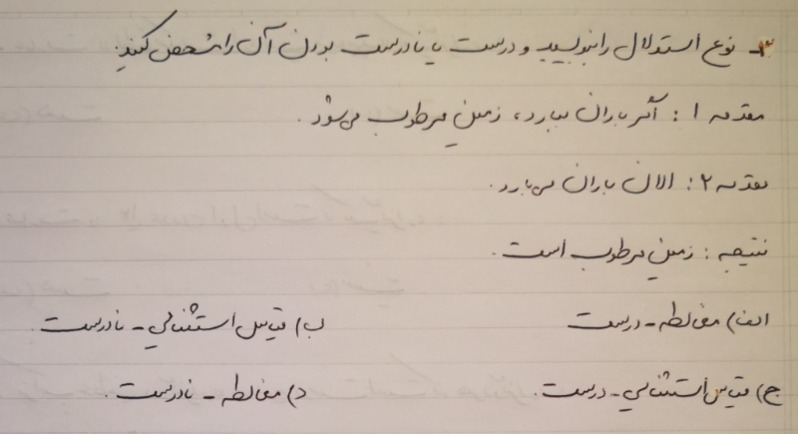 ۳- نوع استدلال را بنویسید و درست یا نادرست بودن آن را مشخص کنید.
مقدمه ۱: اگر باران ببارد، زمین مرطوب می‌شود.
مقدمه ۲: الان باران می‌بارد.
نتیجه: زمین مرطوب است.
الف) مغالطه - درست ب) قیاس استثنائی - نادرست.
ج) قیاس استثنائی - درست. د) مغالطه - نادرست.